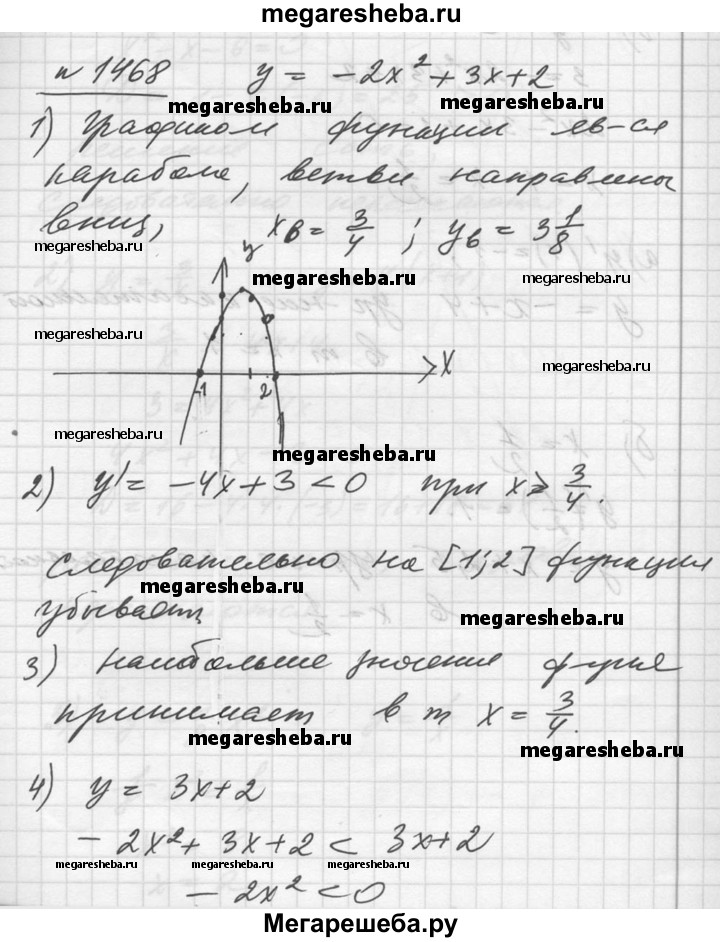 megaresheba.ru
n 1468 y = -2x² + 3x + 2
megaresheba.ru megaresheba.ru
1) Графиком функции яв-ся
парабола, ветви направлены
вниз, x_B = 3/4 ; y_B = 3 1/8
megaresheba.ru
y
megaresheba.ru
megaresheba.ru
-1 2 x
megaresheba.ru
2) y' = -4x + 3 < 0 при x > 3/4.
Следовательно на [1; 2] функция
megaresheba.ru
убывает,
megaresheba.ru
3) наибольше значение ф-ция
принимает в т x = 3/4.
megaresheba.ru
megaresheba.ru
4) y = 3x + 2
-2x² + 3x + 2 < 3x + 2
megaresheba.ru megaresheba.ru megaresheba.ru
-2x² < 0
Мегарешеба.ру